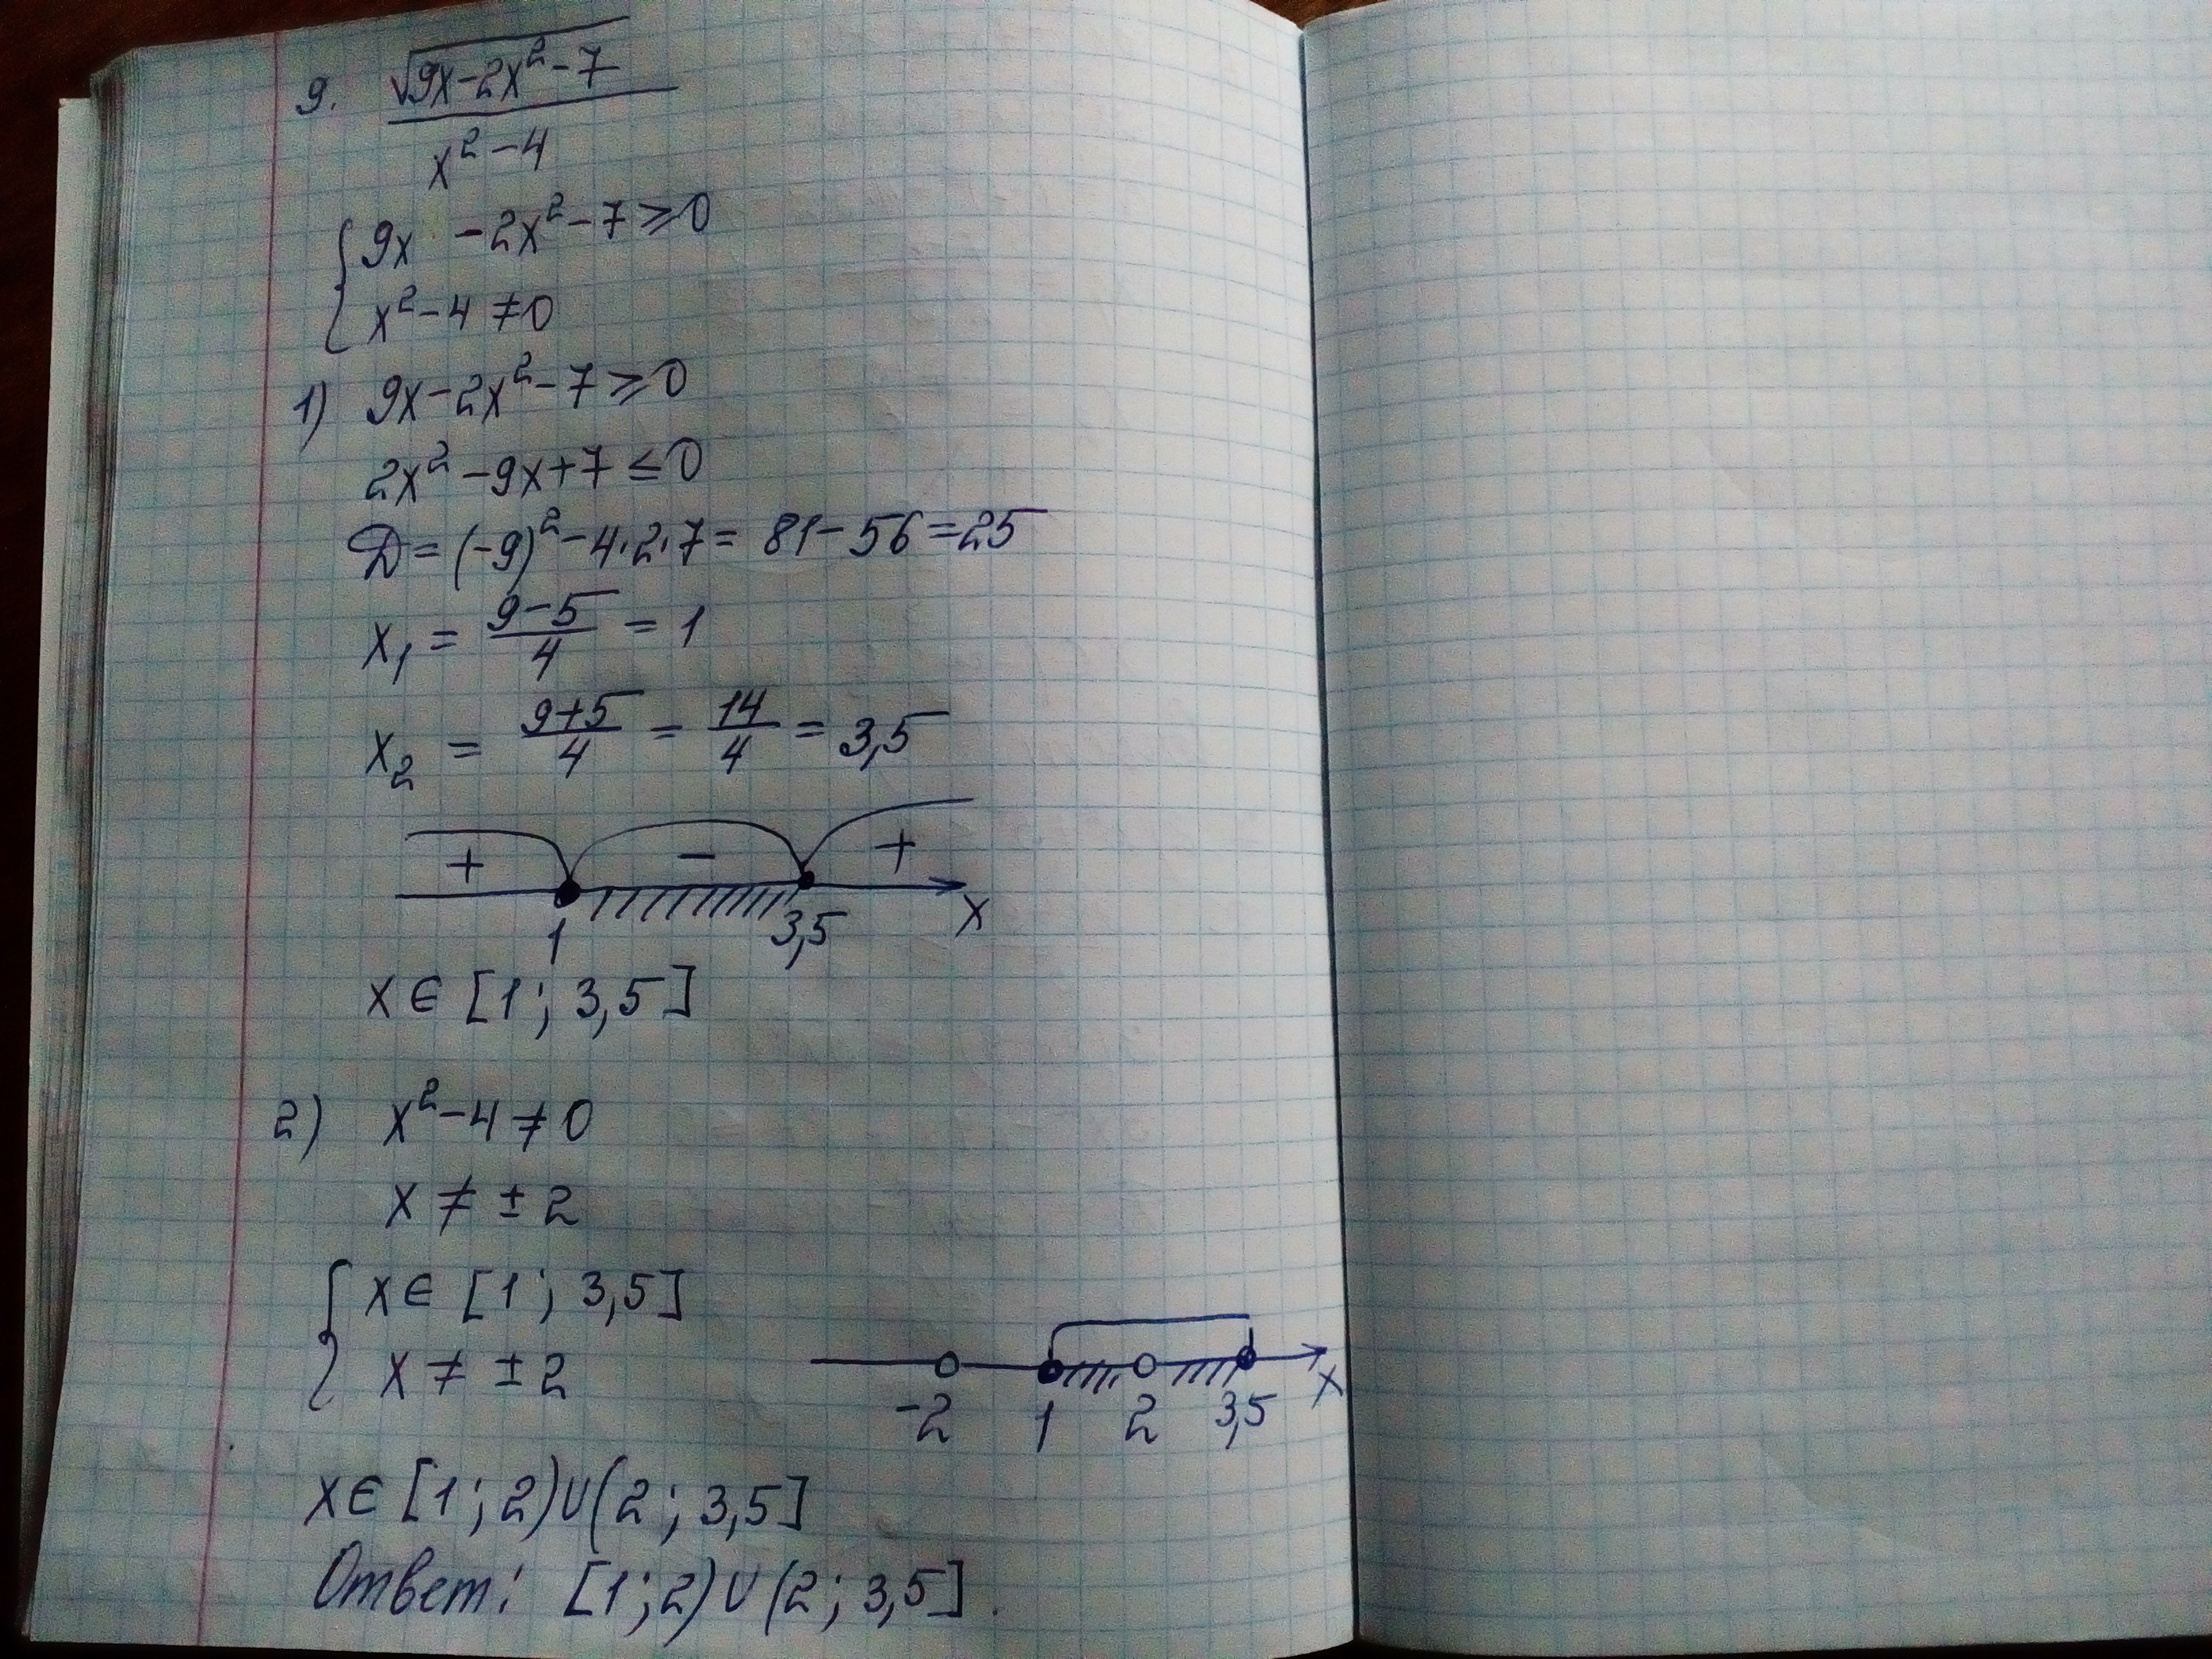 9. √(9x-2x²-7) / (x²-4)
{ 9x -2x²-7≥0
x²-4≠0
1) 9x-2x²-7≥0
2x²-9x+7≤0
D=(-9)²-4·2·7= 81-56=25
x₁ = (9-5)/4 = 1
x₂ = (9+5)/4 = 14/4 = 3,5
+ - +
1 3,5 x
x∈[1; 3,5]
2) x²-4≠0
x≠±2
{ x∈[1; 3,5]
x≠±2
-2 1 2 3,5 x
x∈[1;2)∪(2;3,5]
Ответ: [1;2)∪(2;3,5].